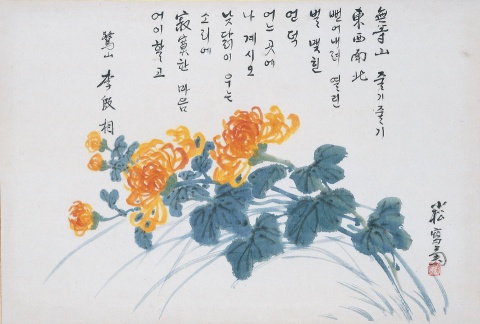 無等山 줄기줄기
東西南北
뻗어내려 열린
별 맺힌
언덕
어느 곳에
나 계시오
낮닭이 우는
소리에
寂寞한 마음
어이할고
鷺山 李殷相
小松寫